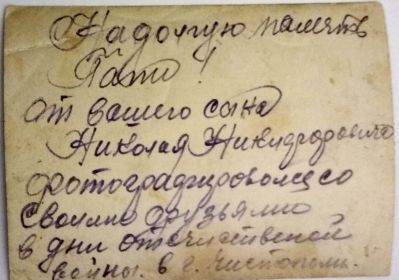 На долгую память
Пати!
от вашего сына
Николая Никифоровича
фотографировался со
своими друзьями
в дни отечественой
войны. в г. Чистополи.